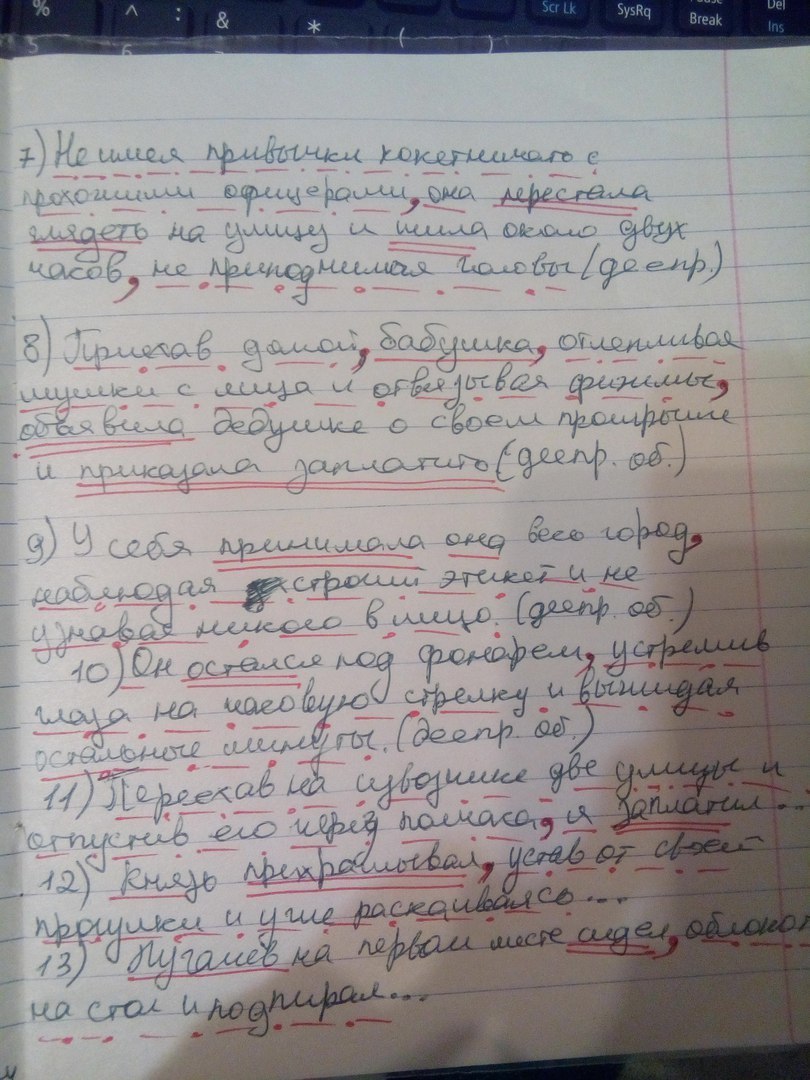 % ^ : & * ( ) Scr Lk SysRq Pause Break Del Ins
5 6
7) Не имея привычки кокетничать с
прохожими офицерами, она перестала
глядеть на улицу и шила около двух
часов, не приподнимая головы (деепр.)
8) Приехав домой, бабушка, отлепливая
мушки с лица и отвязывая фижмы,
объявила дедушке о своем проигрыше
и приказала заплатить (деепр. об.)
9) У себя принимала она весь город,
наблюдая строгий этикет и не
узнавая никого в лицо. (деепр. об.)
10) Он остался под фонарем, устремив
глаза на часовую стрелку и выжидая
остальные минуты. (деепр. об.)
11) Переехав на извозчике две улицы и
отпустив его через полчаса, я заплатил...
12) Князь прихрамывал, устав от своей
прогулки и уже раскаиваясь...
13) Пугачёв на первом месте сидел, облокот
на стол и подпирая...